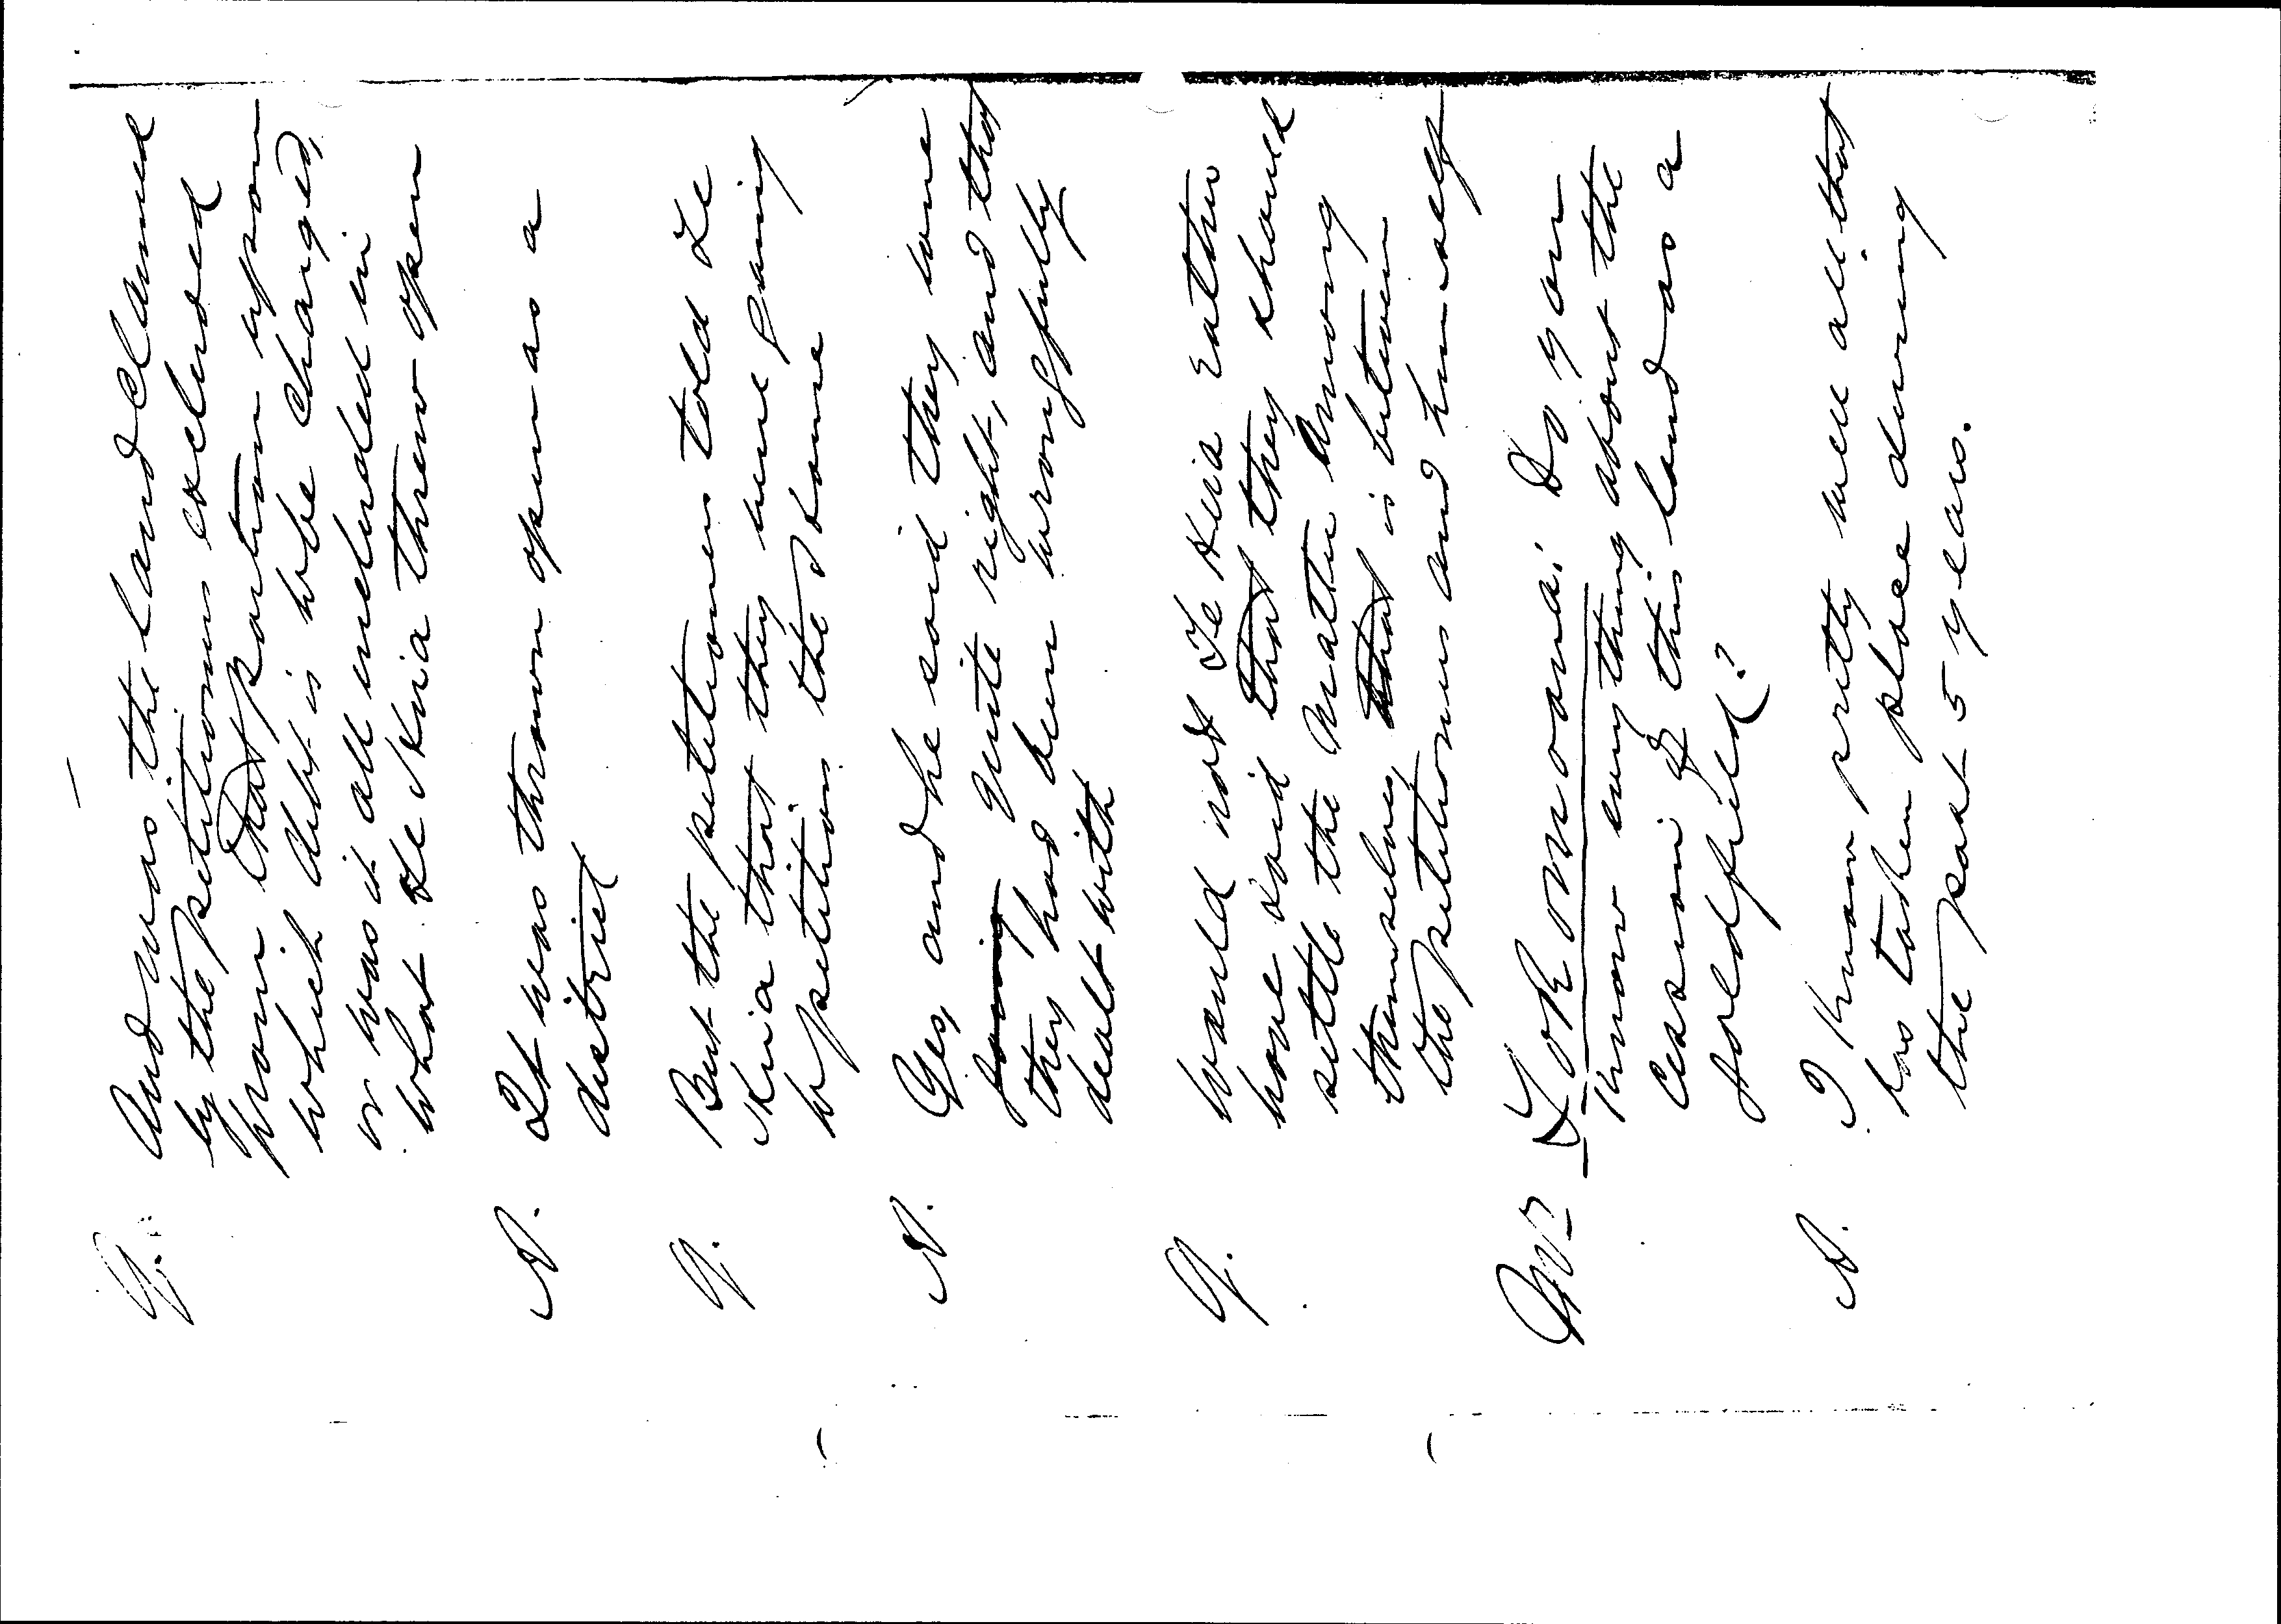 Q. And was the land claimed
by the petitioners excluded
from that portion upon
which debt is to be charged,
or was it all included in
what Te Kuia threw open
A. It was thrown open as a
district
Q. But the petitioners told Te
Kuia that they were going
to petition the House
A. Yes, and he said they were
quite right, and that
they had been wrongfully
dealt with
Q. Would not Te Kuia rather
have said that they should
settle the matter among
themselves, that is between
the petitioners and himself
Mr Tokomoana: Do you
know anything about the
Cession of this land as a
goldfield?
A. I know pretty well all that
has taken place during
the past 5 years.